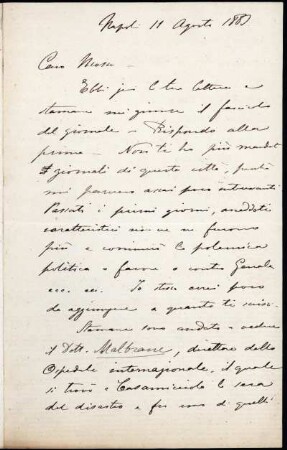 Napoli 11 Agosto 188
Caro
Ebbi jeri la tua lettera e
stamane mi giunse il fascicolo
del giornale – Rispondo alla
prima – Non ti ho più mandati
giornali di questa città, perchè
mi parvero assai poco interessanti
Passati i primi giorni, aneddoti
caratteristici non ve ne furono
più e cominciò la polemica
politica a favore o contro Genala
ecc. ecc. Io stesso avrei poco
da aggiungere a quanto ti scrissi.
Stamane sono andato a vedere
il Dott. Malbranc, direttore dello
Ospedale internazionale, il quale
si trovò a Casamicciola la sera
del disastro e fu uno di quelli